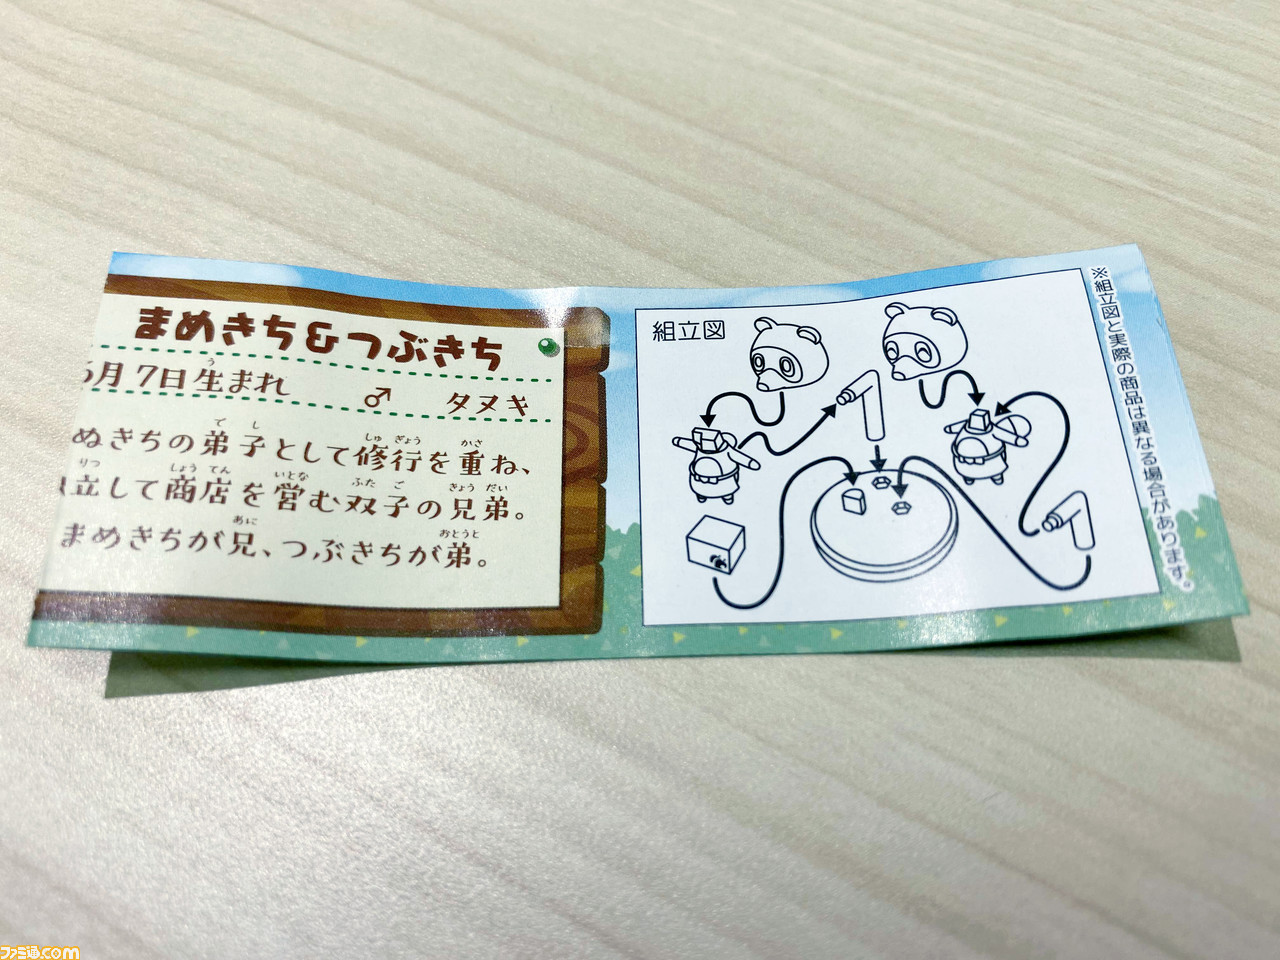 まめきち&つぶきち
月7日生まれ ♂ タヌキ
ぬきちの弟子として修行を重ね、
立して商店を営む双子の兄弟。
まめきちが兄、つぶきちが弟。
組立図
※組立図と実際の商品は異なる場合があります。
ファミ通.com